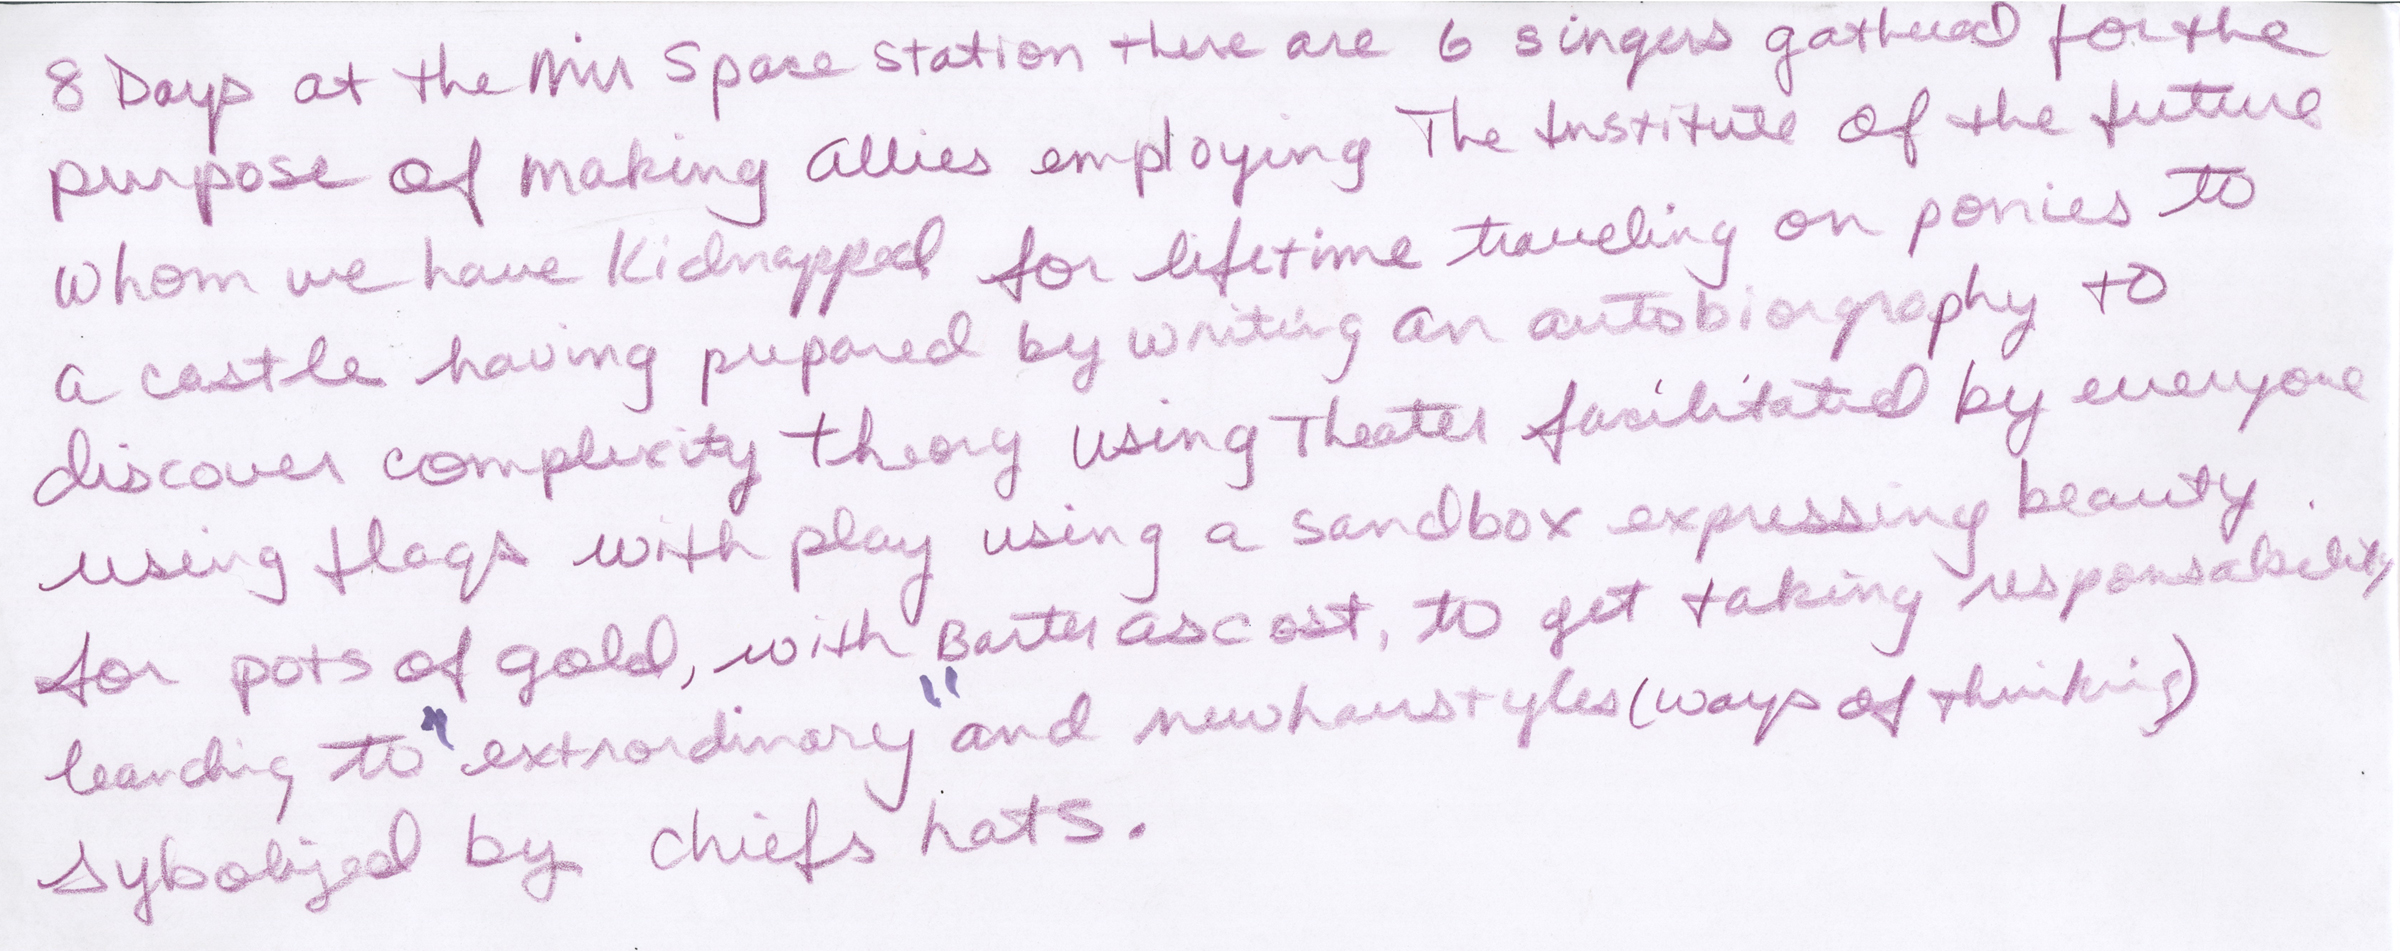 8 Days at the Mir Space station there are 6 singers gathered for the
purpose of making allies employing The Institute of the future
whom we have kidnapped for lifetime traveling on ponies to
a castle having prepared by writing an autobiorgraphy to
discover complexity theory using Theater facilitated by everyone
using flags with play using a sandbox expressing beauty.
for pots of gold, with Barter as cost, to get taking responsability
leanding to "extrordinary" and new hairstyles (ways of thinking)
sybolized by chiefs hats.